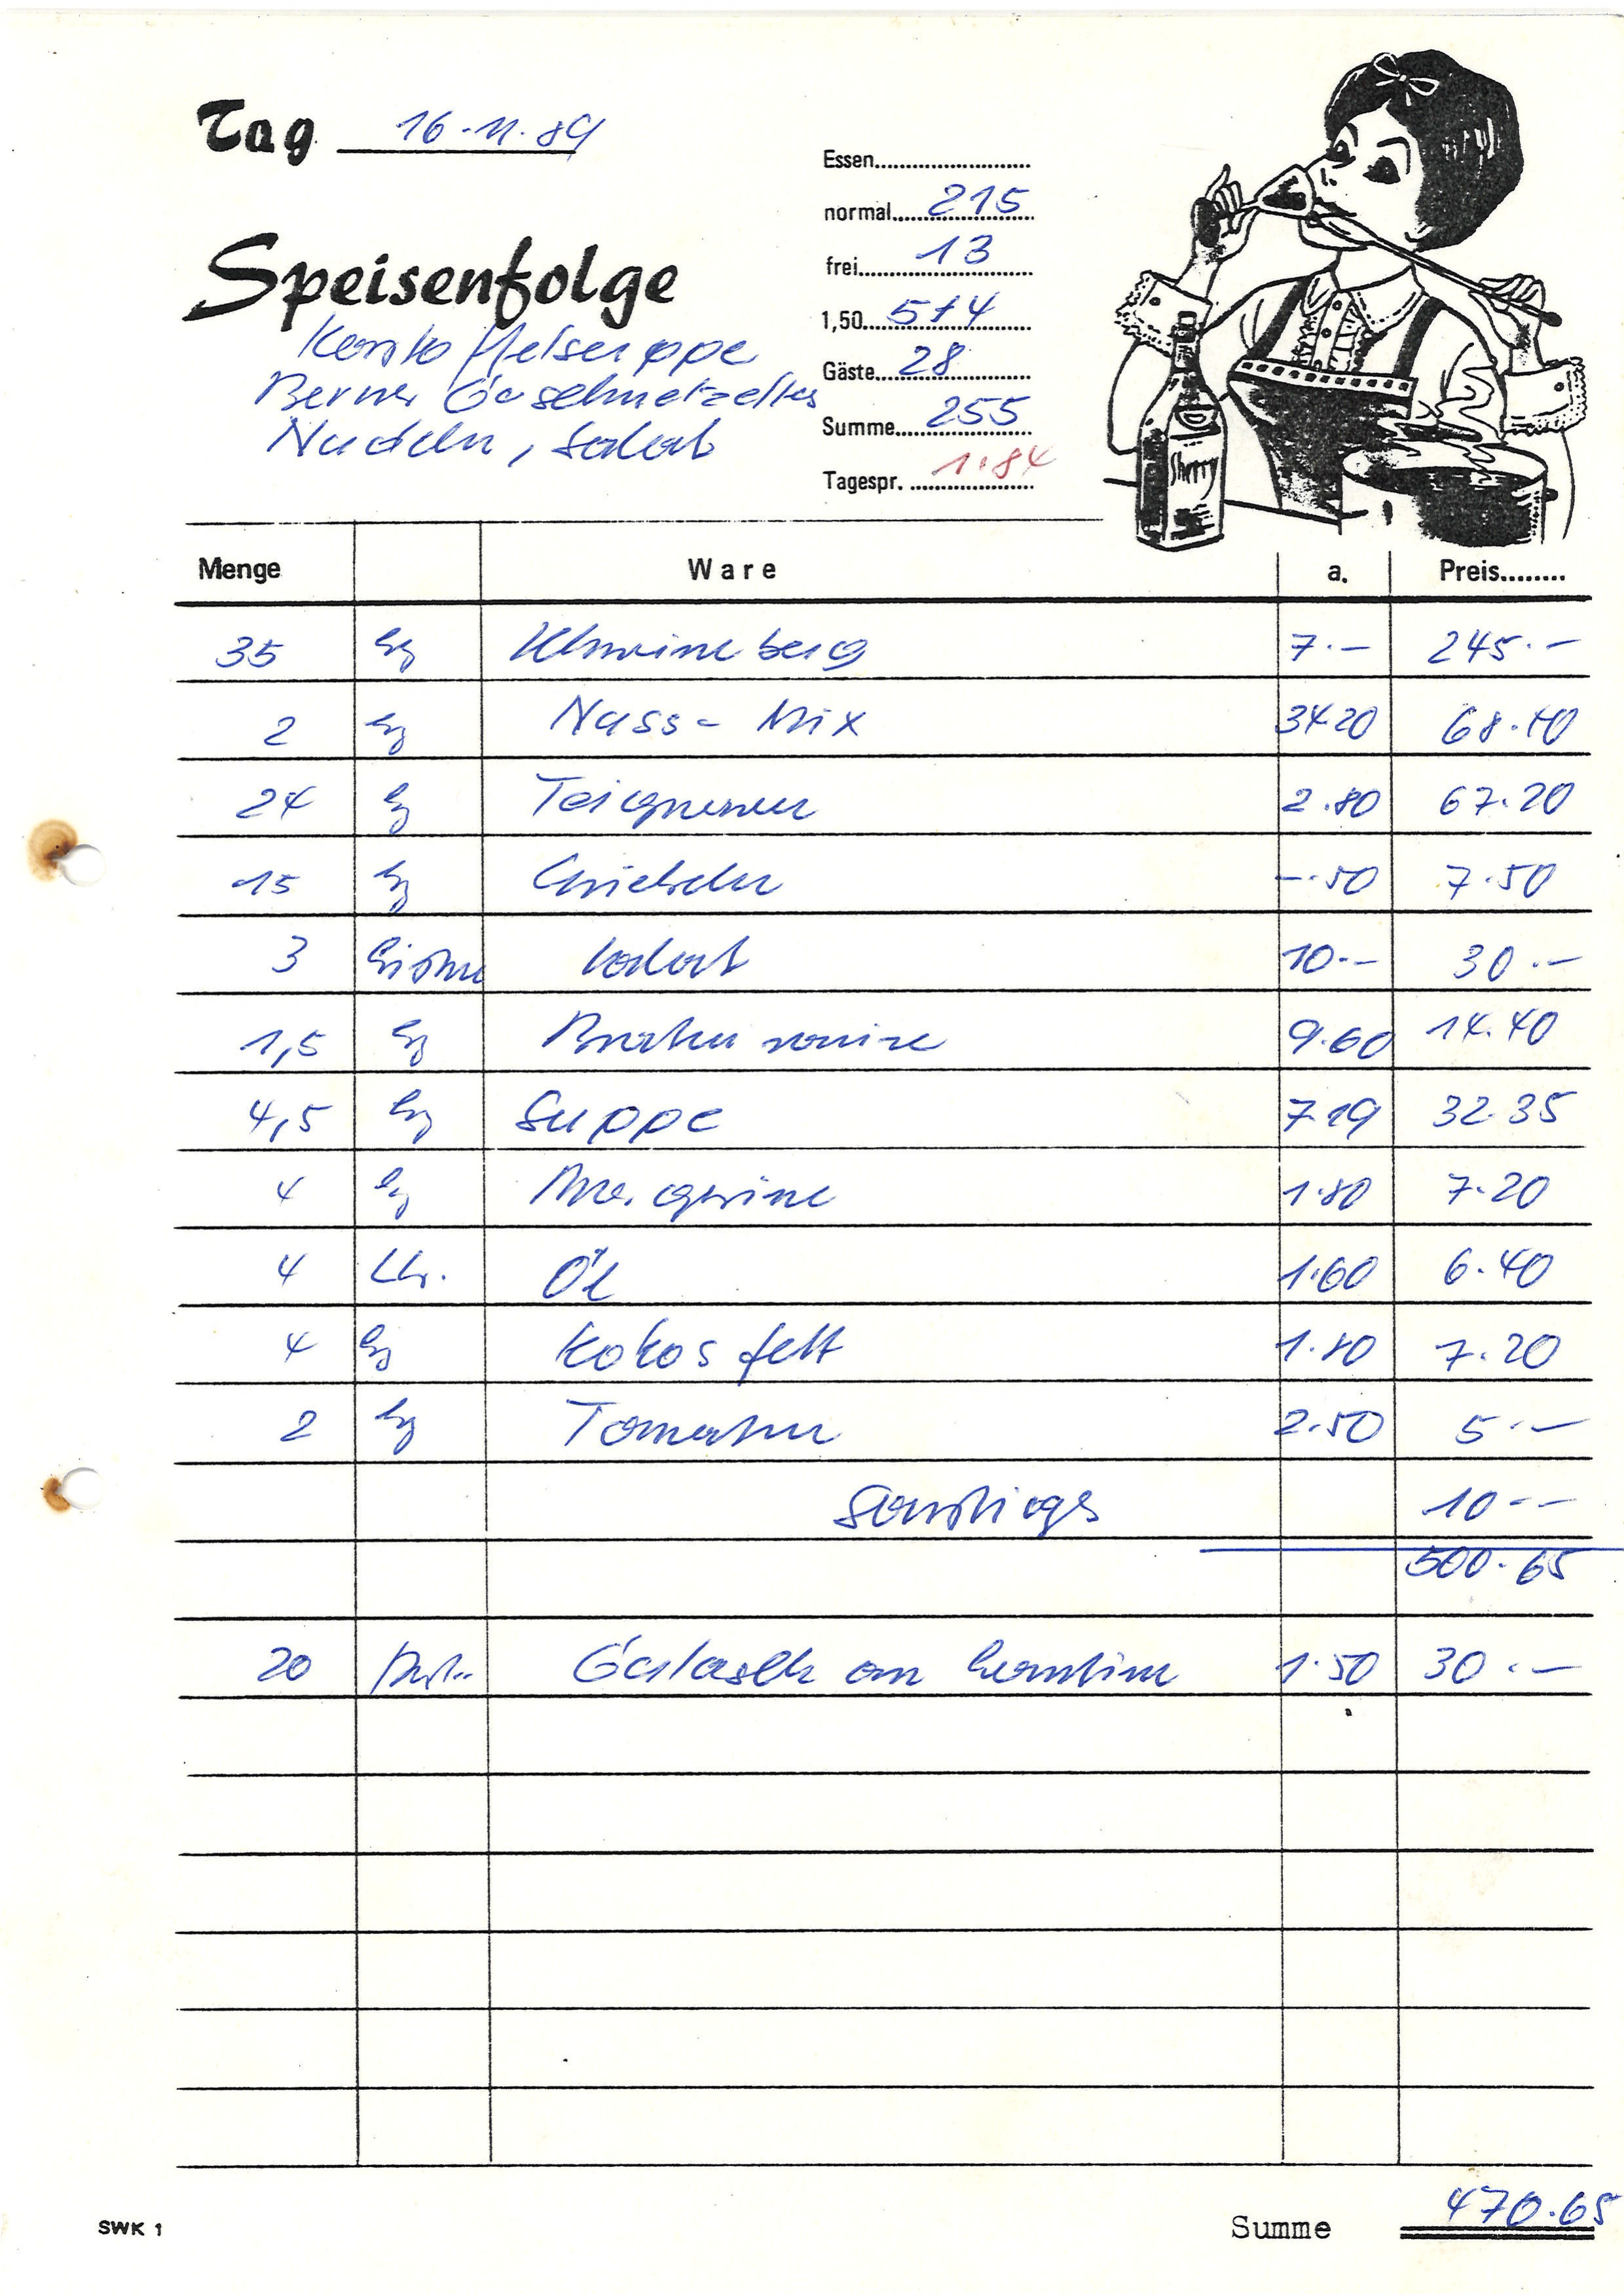 Tag 16.11.89
Speisenfolge
Kartoffelsuppe
Berner Geschnetzeltes
Nudeln, Salat
Essen
normal 215
frei 13
1,50 5+4
Gäste 28
Summe 255
Tagespr. 1.84
Sherry
Menge Ware a. Preis
35 kg 7.- 245.-
2 kg Nass-Mix 34 20 68.40
24 kg Teigwaren 2.80 67.20
15 kg Zwiebeln -.50 7.50
3 Kisten Salat 10.- 30.-
1,5 kg Bratensauce 9.60 14.40
4,5 kg Suppe 7 19 32 35
4 kg Margarine 1.80 7.20
4 Ltr. Öl 1.60 6.40
4 kg Kokosfett 1.80 7.20
2 kg Tomaten 2.50 5.-
Sonstiges 10.-
500.65
20 Gulasch an Kantine 1.50 30.-
SWK 1
Summe 470.65